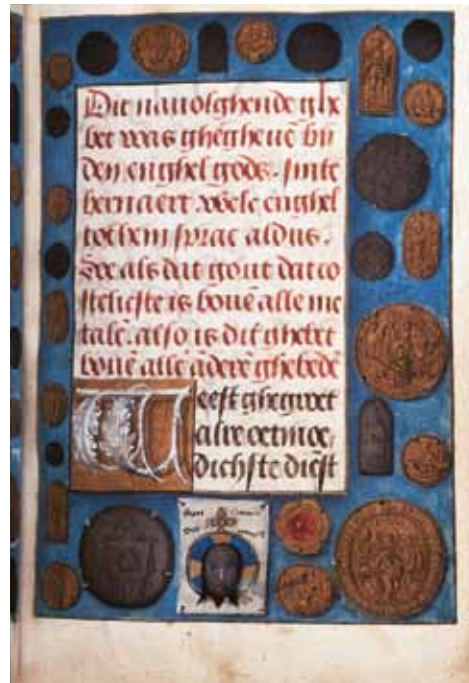 Dit navolghende ghe
bet was ghegheuē bij
den enghel gods. sinte
bernaert. welc enghel
tot hem sprac aldus.
Soe als dat gout dat co
stelicste is bouē alle me
talē. also is dit ghebet
bouē allē ādere ghebedē
Weest ghegroet
alre oetmoe,
dichste diēst